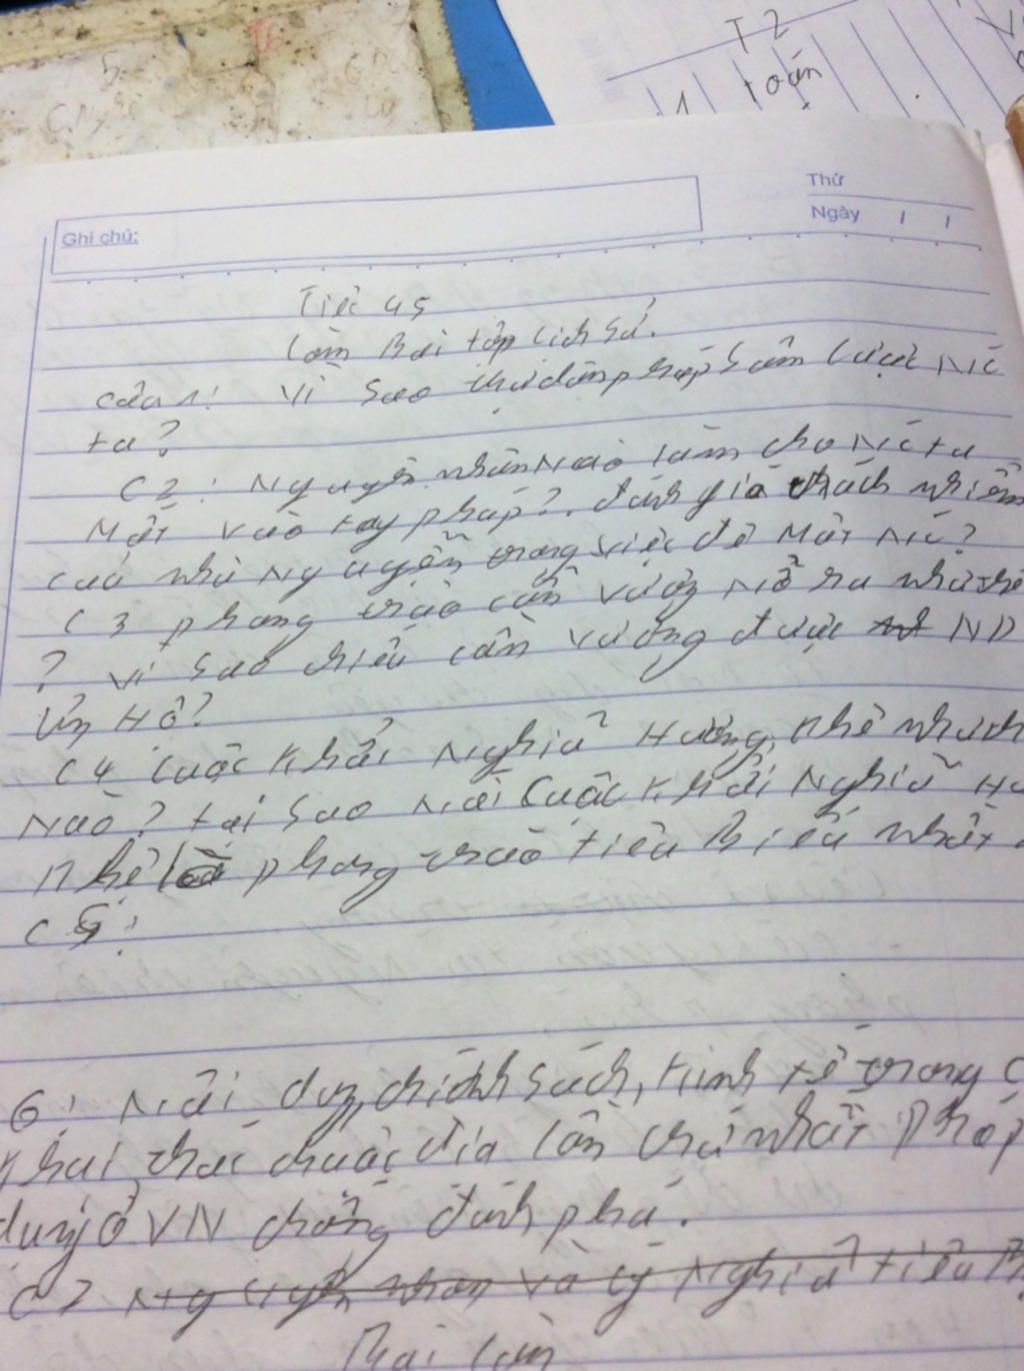 T2
1 toán
Thứ
Ngày / /
Ghi chú:
Tiết 45
Làm Bài tập Lịch Sử.
Câu 1: Vì Sao thực dân pháp Xâm Lược Nước
ta?
C2: Nguyên nhân Nào làm cho Nước ta
Mất vào tay pháp?. đánh giá trách nhiệm
của nhà Nguyễn trong việc để Mất Nước?
C3 phong trào cần vương Nổ ra như thế
? Vì Sao chiếu cần vương được ND
Ủng Hộ?
C4 Cuộc Khởi Nghĩa Hương Khê như
Nào? tại Sao Nói Cuộc Khởi Nghĩa
Khê là phong trào tiêu Biểu nhất.
C5:
6: Nội dung, chính sách, kinh tế trong C
Khai thác thuộc địa lần thứ nhất Pháp
dụng ở VN chống đánh phá.
C7 Nguyên nhân và ý Nghĩa tiêu B
Bài làm